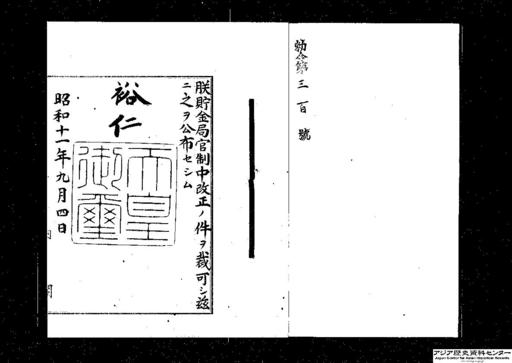 勅令第三百號
朕貯金局官制中改正ノ件ヲ裁可シ茲
ニ之ヲ公布セシム
裕仁
天皇
御璽
昭和十一年九月四日
アジア歴史資料センター
Japan Center for Asian Historical Records